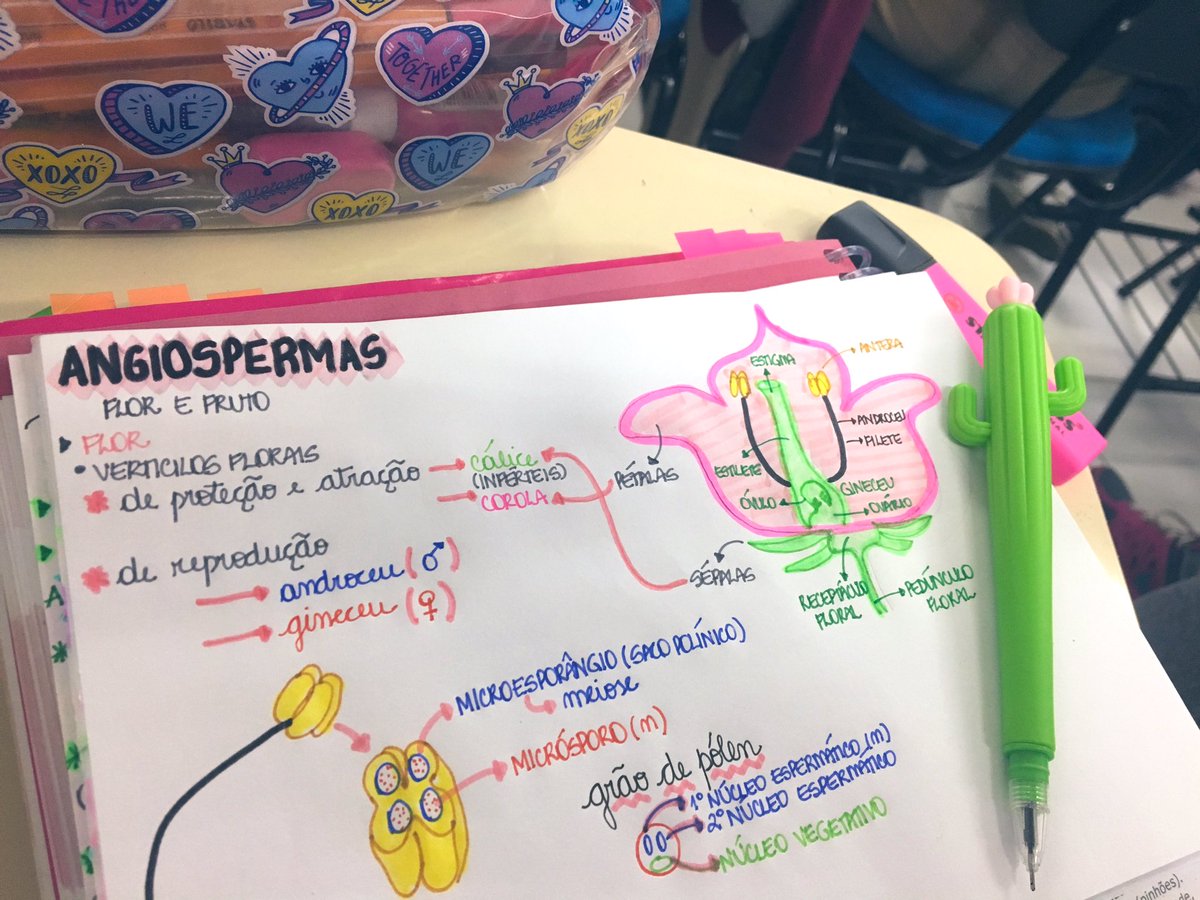 TOGETHER
WE
XOXO
WE
XOXO
XOXO
ANGIOSPERMAS
FLOR E FRUTO
FLOR
VERTICILOS FLORAIS
de proteção e atração
cálice
(INFÉRTEIS)
COROLA
PÉTALAS
SÉPALAS
de reprodução
androceu (♂)
gineceu (♀)
ESTIGMA
ANTERA
ANDROCEU
FILETE
ESTILETE
GINECEU
ÓVULO
OVÁRIO
RECEPTÁCULO
FLORAL
PEDÚNCULO
FLORAL
MICROESPORÂNGIO (SACO POLÍNICO)
meiose
MICRÓSPORO (n)
grão de pólen
1º NÚCLEO ESPERMÁTICO (n)
2º NÚCLEO ESPERMÁTICO
NÚCLEO VEGETATIVO
(pinhões).